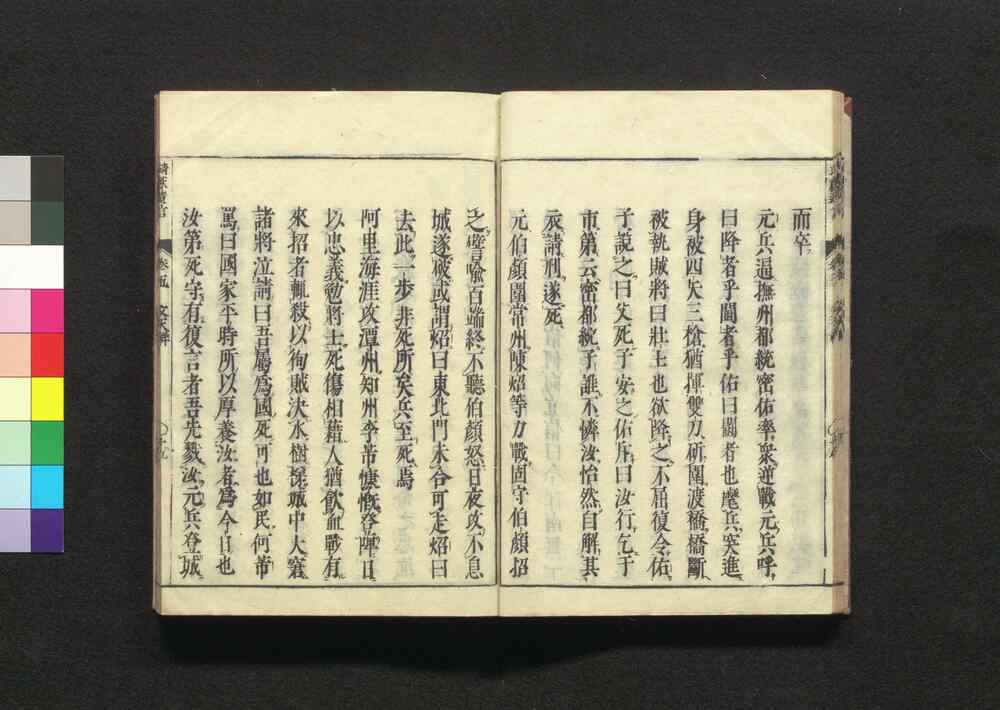 而卒
元兵逼撫州都統密佑率衆逆戰元兵呼
曰降者乎鬪者乎佑曰鬪者也麾兵突進
身被四矢三槍猶揮雙刀斫圍渡橋橋斷
被執賊將曰壯士也欲降之不屈復令佑
子說之曰父死子安之佑斥曰汝行乞于
市第云密都統子誰不憐汝怡然自解其
衣請刑遂死
元伯顏圍常州陳炤等力戰固守伯顏招
之譬喻百端終不聽伯顏怒日夜攻不息
城遂破或謂炤曰東北門未合可走炤曰
去此一步非死所矣兵至死焉
阿里海涯攻潭州知州李芾慷慨登陴日
以忠義勉將士死傷相藉人猶飲血戰有
來招者輒殺以徇賊決水樹梯城中大窘
諸將泣請曰吾屬爲國死可也如民何芾
罵曰國家平時所以厚養汝者爲今日也
汝第死守有復言者吾先戮汝元兵登城
靖獻遺言
卷五 文天祥